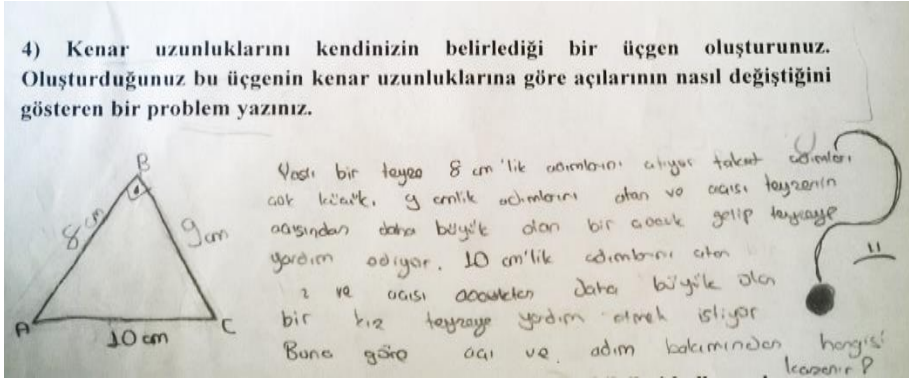 4) Kenar uzunluklarını kendinizin belirlediği bir üçgen oluşturunuz.
Oluşturduğunuz bu üçgenin kenar uzunluklarına göre açılarının nasıl değiştiğini
gösteren bir problem yazınız.
B
8 cm
9 cm
A
10 cm
C
Yaşlı bir teyze 8 cm'lik adımlarını atıyor fakat adımları
çok küçük. 9 cmlik adımlarını atan ve açısı teyzenin
açısından daha büyük olan bir çocuk gelip teyzeye
yardım ediyor. 10 cm'lik adımlarını atan
ve açısı çocuktan daha büyük olan
bir kız teyzeye yardım etmek istiyor
Buna göre açı ve adım bakımından hangisi
kazanır?